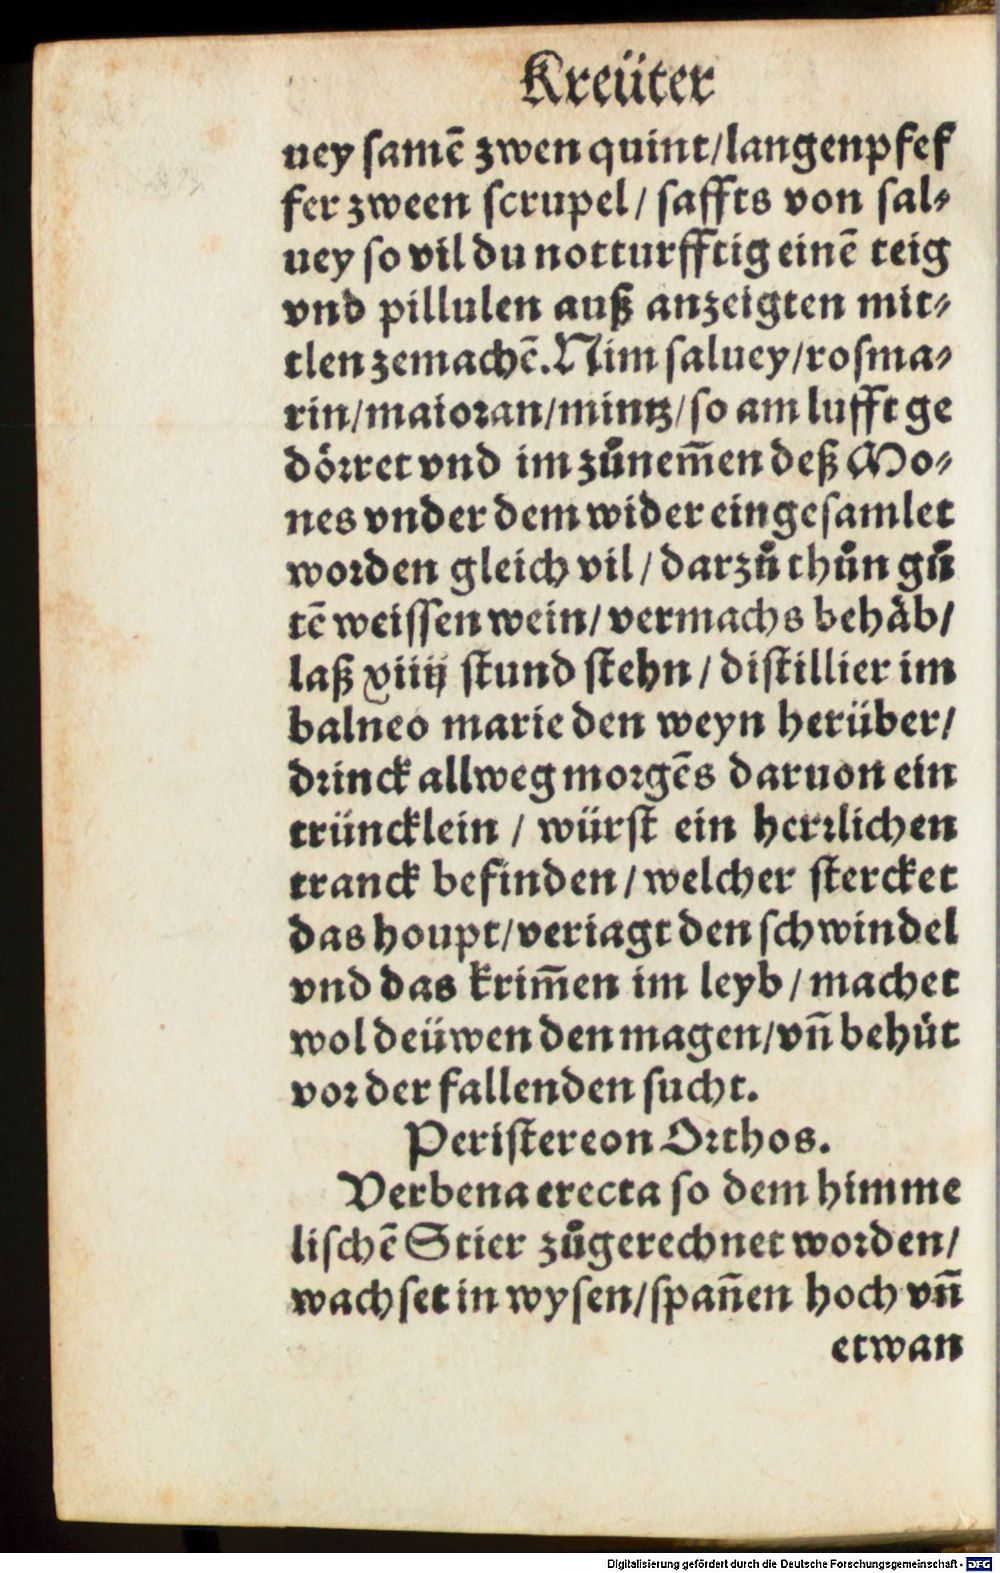 Kreüter
uey samē zwen quint/langenpfef
fer zween scrupel/ saffts von sal⸗
uey so vil du notturfftig einē teig
vnd pillulen auß anzeigten mit⸗
tlen zemachē. Nim saluey/rosma⸗
rin/maioran/mintz/so am lufft ge
dörret vnd im zůnem̄en deß Mo⸗
nes vnder dem wider eingesamlet
worden gleich vil/ darzů thůn gů
tē weissen wein/ vermachs behäb/
laß xiiij stund stehn/ distillier im
balneo marie den weyn herüber/
drinck allweg morgēs daruon ein
trüncklein / würst ein herrlichen
tranck befinden/ welcher stercket
das houpt/veriagt den schwindel
vnd das krim̄en im leyb/ machet
wol deüwen den magen/vn̄ behüt
vor der fallenden sucht.
Peristereon Orthos.
Verbena erecta so dem himme
lischē Stier zůgerechnet worden/
wachset in wysen/span̄en hoch vn̄
etwan
Digitalisierung gefördert durch die Deutsche Forschungsgemeinschaft - DFG